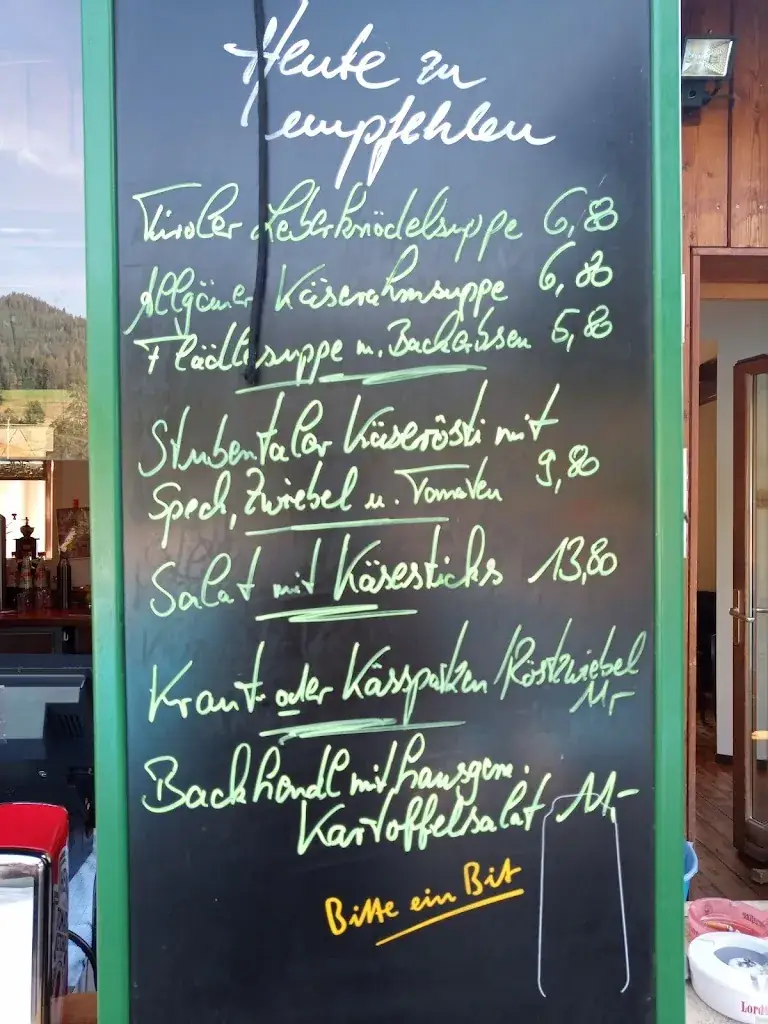 Heute zu
empfehlen
Tiroler Leberknödelsuppe 6,80
Allgäuer Käserahmsuppe 6,80
Flädlesuppe m. Backerbsen 6,80
Stubentaler Käserösti mit
Speck, Zwiebel u. Tomaten 9,80
Salat mit Käsesticks 13,80
Kraut- oder Kässpatzen / Röstzwiebel
11,-
Backhendl mit hausgem.
Kartoffelsalat 11,-
Bitte ein Bit